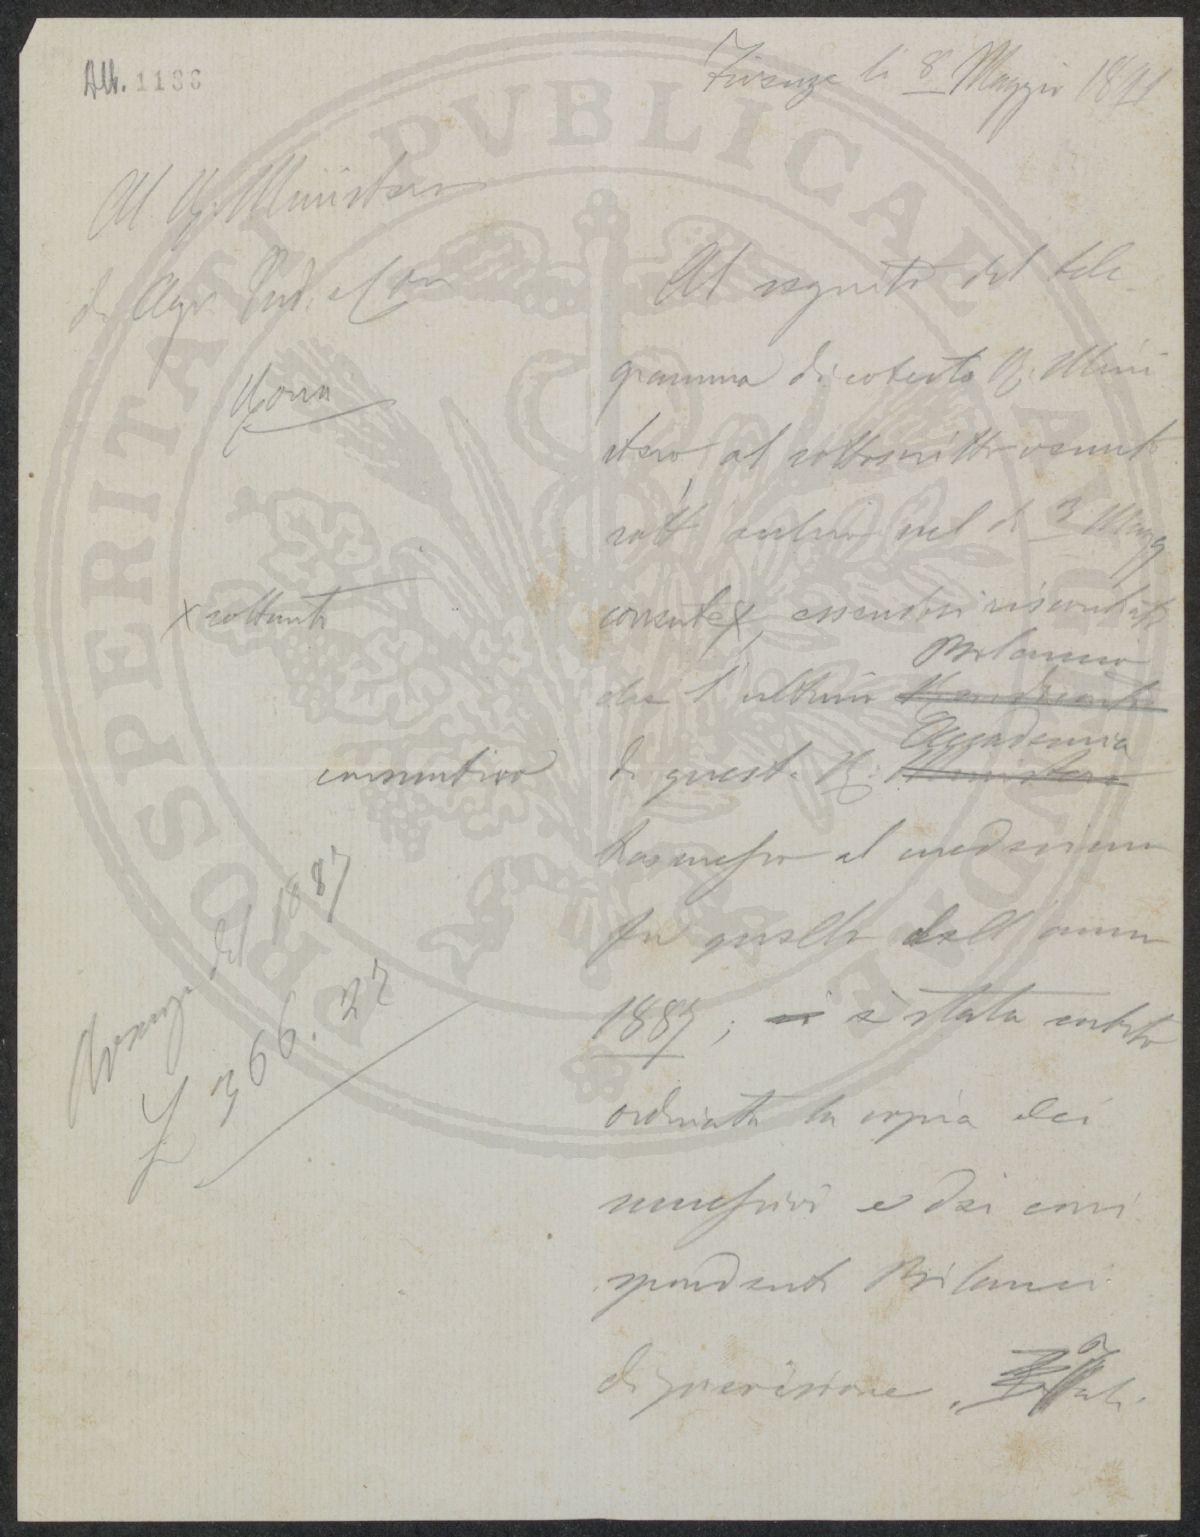 All. 1186
Firenze li 8 Maggio 1891
Al R. Ministero
di Agr. Ind. e Com
Roma
Al seguito del tele-
gramma di codesto R. Mini
stero, al sottoscritto venuto
sott' nel dì 3 Magg
× soltanto
corrente×, essendosi riscontrato
che l'ultimo Rendiconto Bilancio
consuntivo
di questa R: Ministero Accademia
trasmesso al medesimo
fu quello dell'anno
1887; è stata
ordinata la copia dei
successivi e dei corri
spondenti Bilanci
di previsione.
Avanzo del 1887
£ 366.27
PROSPERITATI PVBLICAE AVGENDAE